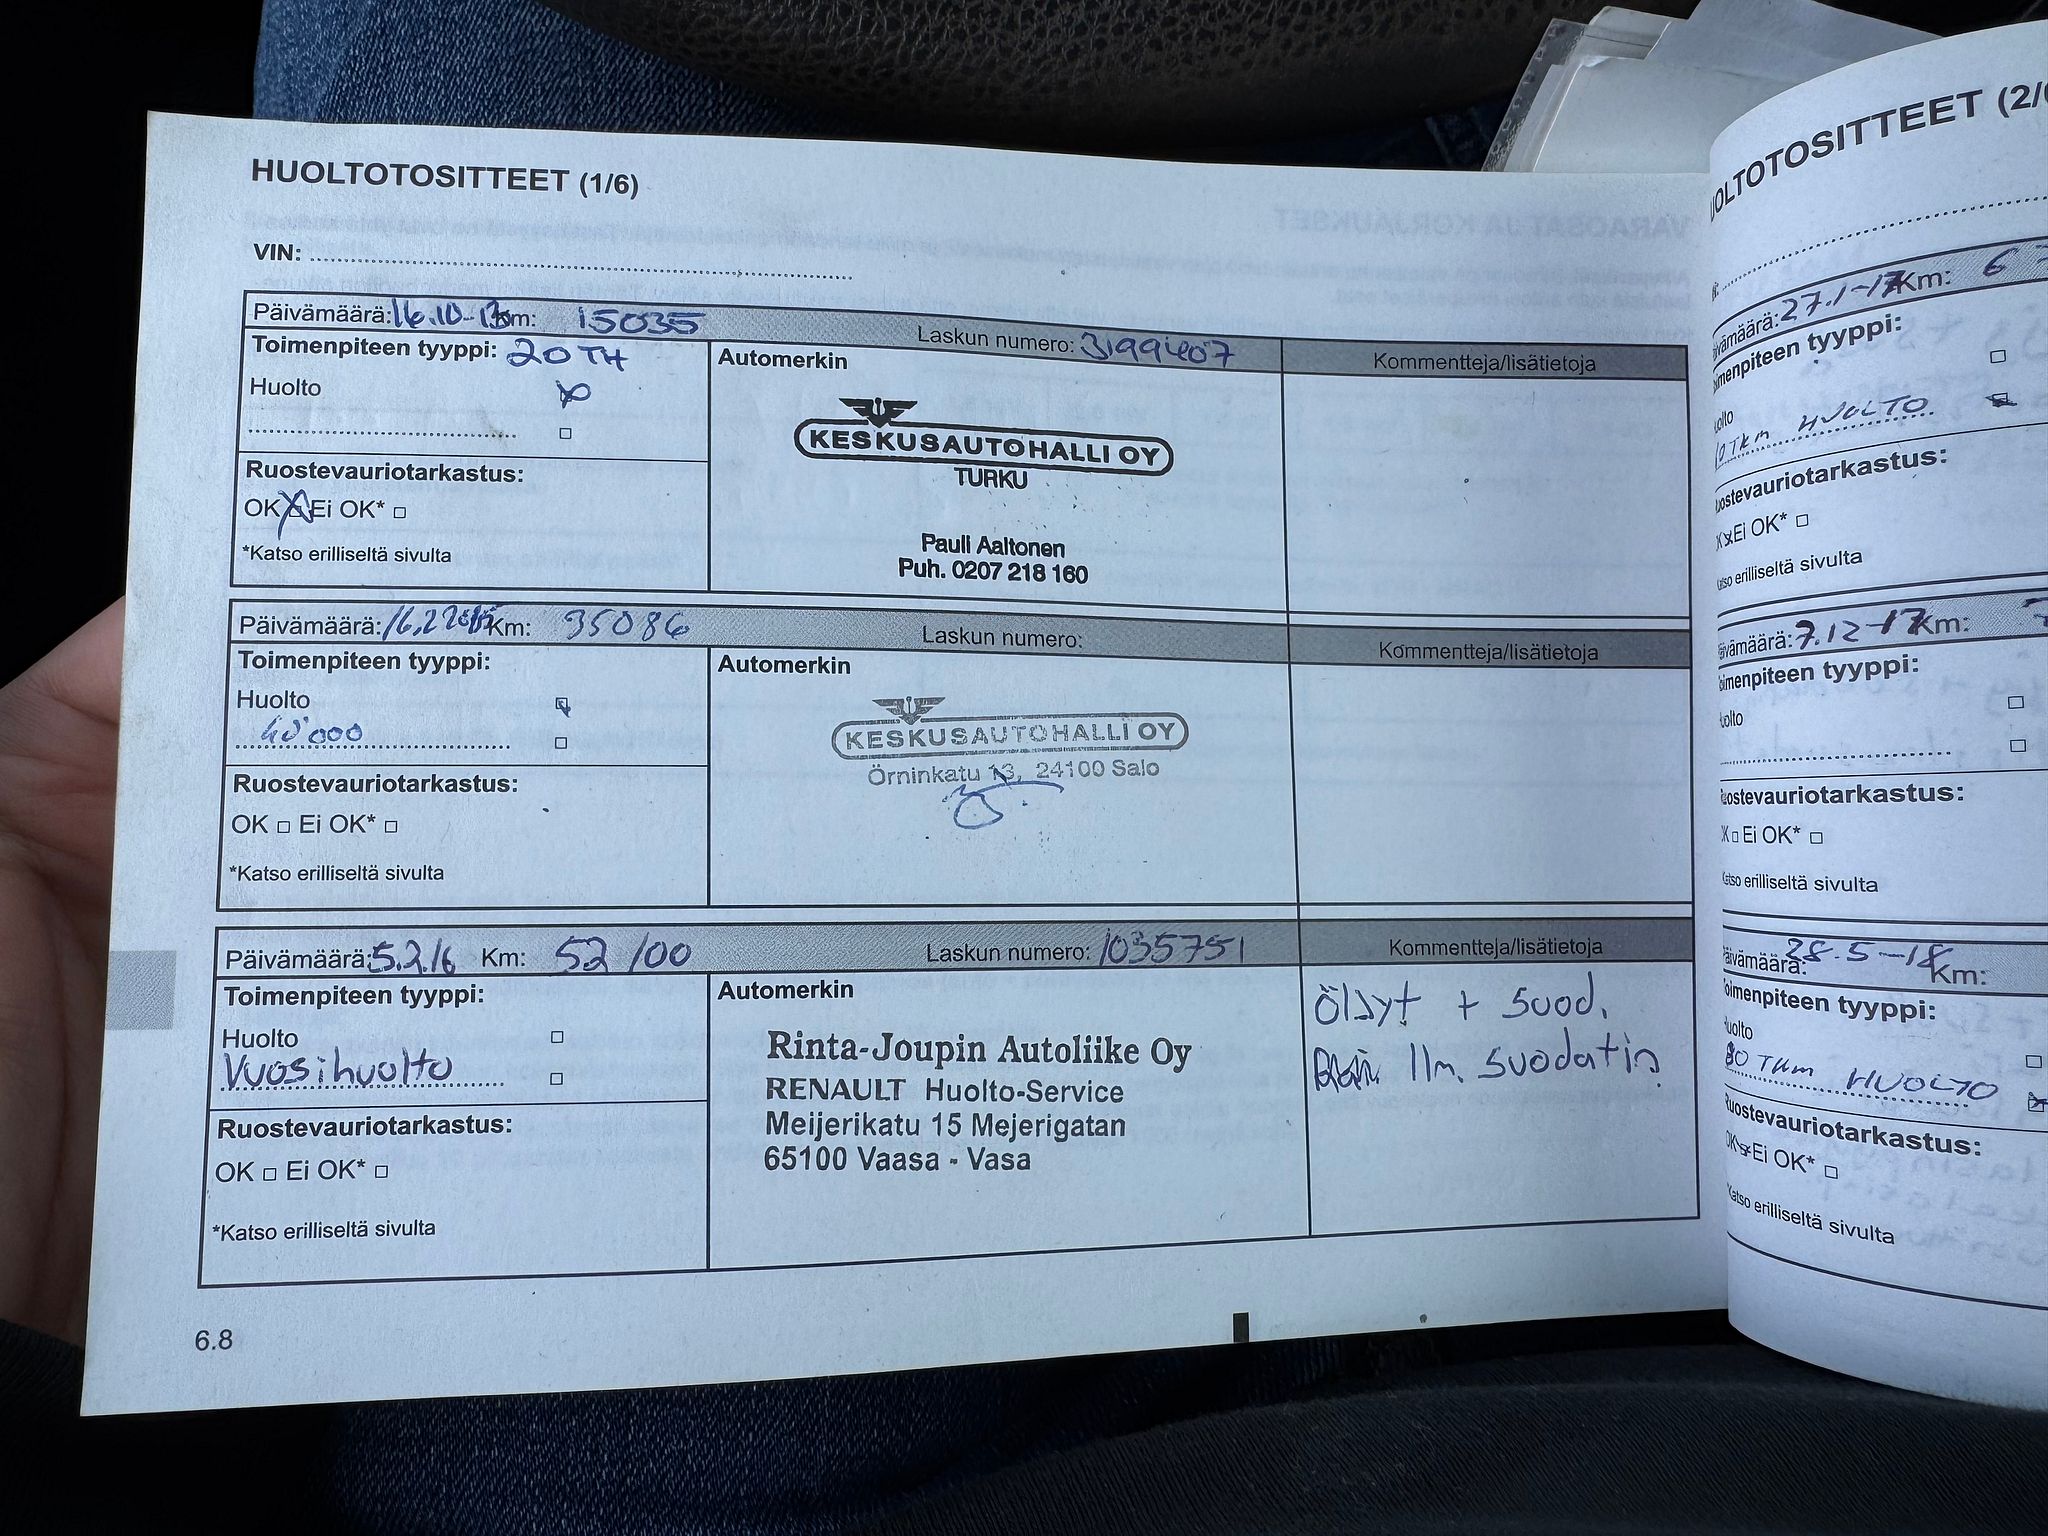 HUOLTOTOSITTEET (1/6)
VIN:
Päivämäärä: 16.10-13 Km: 15035 Laskun numero: 3199407
Toimenpiteen tyyppi: 20 TH
Automerkin
Kommentteja/lisätietoja
Huolto
KESKUSAUTOHALLI OY
TURKU
Ruostevauriotarkastus:
OK Ei OK*
*Katso erilliseltä sivulta
Pauli Aaltonen
Puh. 0207 218 160
Päivämäärä: 16.2 Km: 35086 Laskun numero:
Toimenpiteen tyyppi:
Automerkin
Kommentteja/lisätietoja
Huolto
40'000
KESKUSAUTOHALLI OY
Örninkatu 13, 24100 Salo
Ruostevauriotarkastus:
OK Ei OK*
*Katso erilliseltä sivulta
Päivämäärä: 5.2.16 Km: 52 100 Laskun numero: 1035751
Toimenpiteen tyyppi:
Automerkin
Kommentteja/lisätietoja
Huolto
Vuosihuolto
Rinta-Joupin Autoliike Oy
RENAULT Huolto-Service
Meijerikatu 15 Mejerigatan
65100 Vaasa - Vasa
Öljyt + suod.
Ilm. suodatin
Ruostevauriotarkastus:
OK Ei OK*
*Katso erilliseltä sivulta
6.8
27.1-17 Km: 6
HUOLTO
Ei OK*
sivulta
7.12-17 Km:
tyyppi:
Ei OK*
erilliseltä sivulta
28.5-18
Km:
Toimenpiteen tyyppi:
80 TKM HUOLTO
Ruostevauriotarkastus:
OK Ei OK*
Katso erilliseltä sivulta